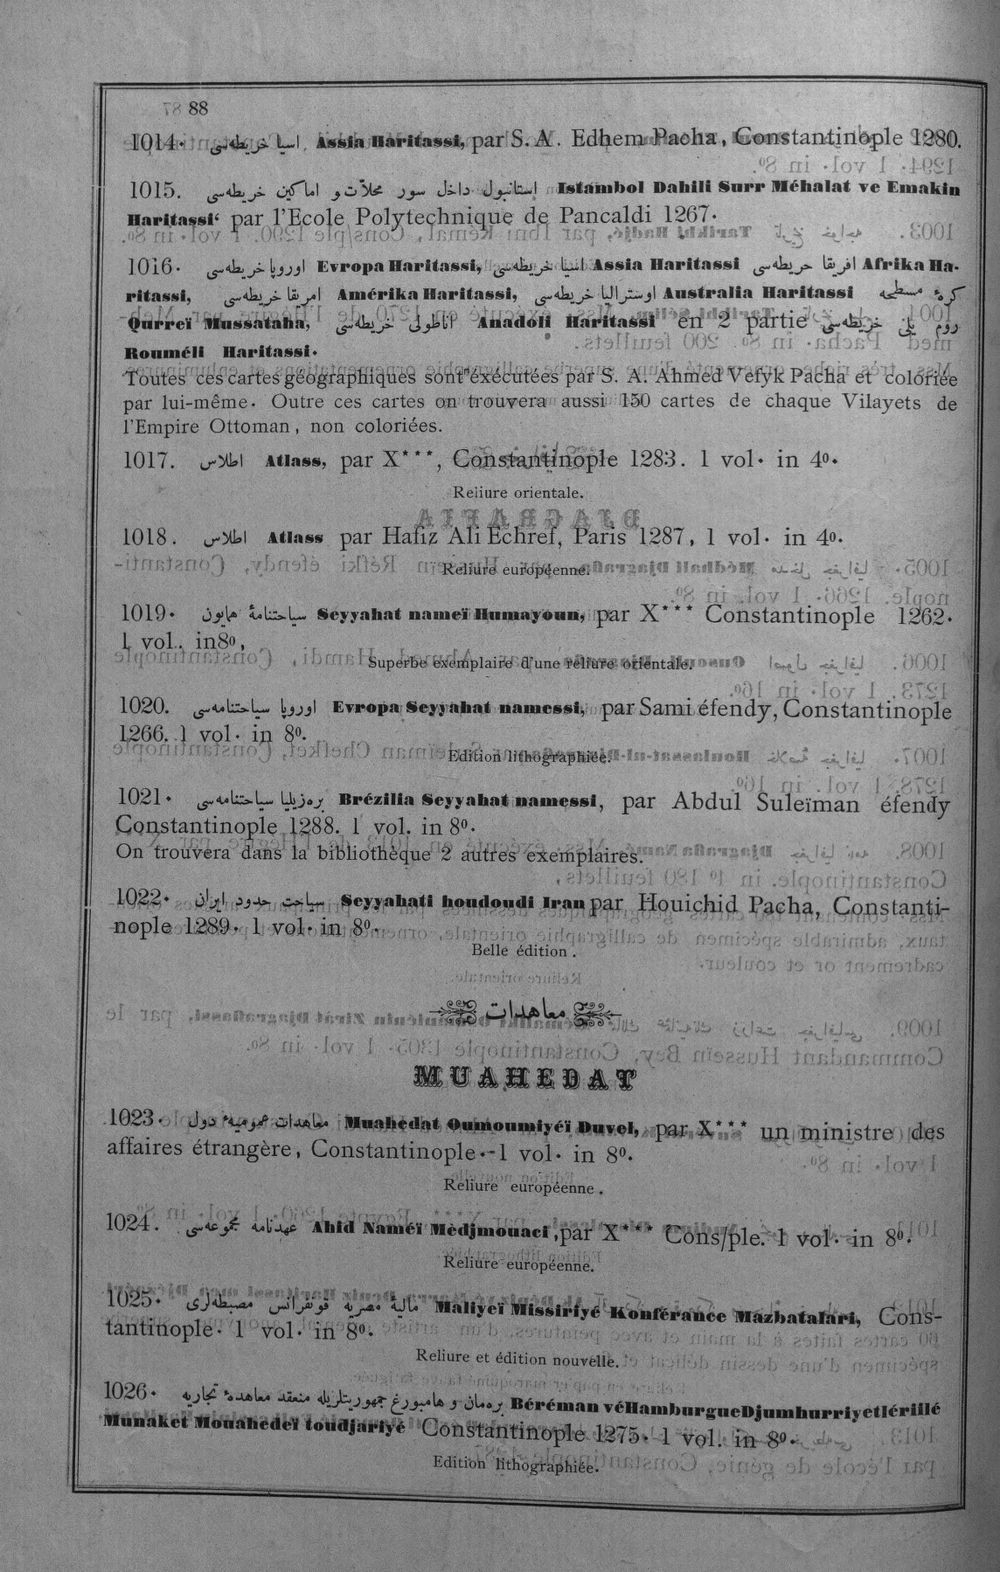 88
1014· اسیا خریطه‌سی Assia Haritassi, par S. A. Edhem Pacha, Constantinople 1280.
1015. استانبول داخل سور محلات و اماکین خریطه‌سی Istambol Dahili Surr Méhalat ve Emakin
Haritassi‘ par l'Ecole Polytechnique de Pancaldi 1267·
1016· اوروپا خریطه‌سی Evropa Haritassi, اسیا خریطه‌سی Assia Haritassi افریقا خریطه‌سی Afrika Ha-
ritassi, امریقا خریطه‌سی Amérika Haritassi, اوسترالیا خریطه‌سی Australia Haritassi کرۀ مسطحه
Qurreï Mussataha, اناطولی خریطه‌سی Anadoli Haritassi en 2 partie روم یلی خریطه‌سی
Rouméli Haritassi·
Toutes ces cartes géographiques sont éxécutées par S. A. Ahmed Vefyk Pacha et coloriée
par lui-même. Outre ces cartes on trouvera aussi 150 cartes de chaque Vilayets de
l'Empire Ottoman, non coloriées.
1017. اطلاس Atlass, par X***, Constantinople 1283. 1 vol· in 4º.
Reliure orientale.
1018. اطلاس Atlass par Hafiz Ali Echref, Paris 1287, 1 vol· in 4º.
Reliure européenne.
1019· سیاحتنامۀ همایون Seyyahat nameï Humayoun, par X*** Constantinople 1262·
1 vol. in 8º,
Superbe exemplaire d'une reliure orientale.
1020. اوروپا سیاحتنامه‌سی Evropa Seyyahat namessi, par Sami éfendy, Constantinople
1266. 1 vol· in 8º.
Edition lithographiée.
1021· بره‌زیلیا سیاحتنامه‌سی Brézilia Seyyahat namessi, par Abdul Suleïman éfendy
Constantinople 1288. 1 vol. in 8º·
On trouvera dans la bibliothèque 2 autres exemplaires.
1022· سیاحت حدود ایران Seyyahati houdoudi Iran par Houichid Pacha, Constanti-
nople 1289· 1 vol· in 8º.
Belle édition.
معاهدات
MUAHEDAT
1023· معاهدات عمومیۀ دول Muahedat Oumoumiyéï Duvel, par X*** un ministre des
affaires étrangère, Constantinople·-1 vol· in 8º.
Reliure européenne.
1024. عهدنامه مجموعه‌سی Ahid Naméï Mèdjmouaci, par X*** Cons/ple. 1 vol· in 8º.
Reliure européenne.
1025· مالیۀ مصریه قونفرانس مصبطه‌لری Maliyeï Missiriyé Konférance Mazbatalari, Cons-
tantinople· 1 vol· in 8º.
Reliure et édition nouvelle.
1026· بره‌مان و هامبورغ جمهوریتلریله منعقد معاهدۀ تجاریه Béréman vé Hamburgue Djumhurriyetlérillé
Munaket Mouahedeï toudjariyé Constantinople 1275· 1 vol. in 8º.
Edition lithographiée.